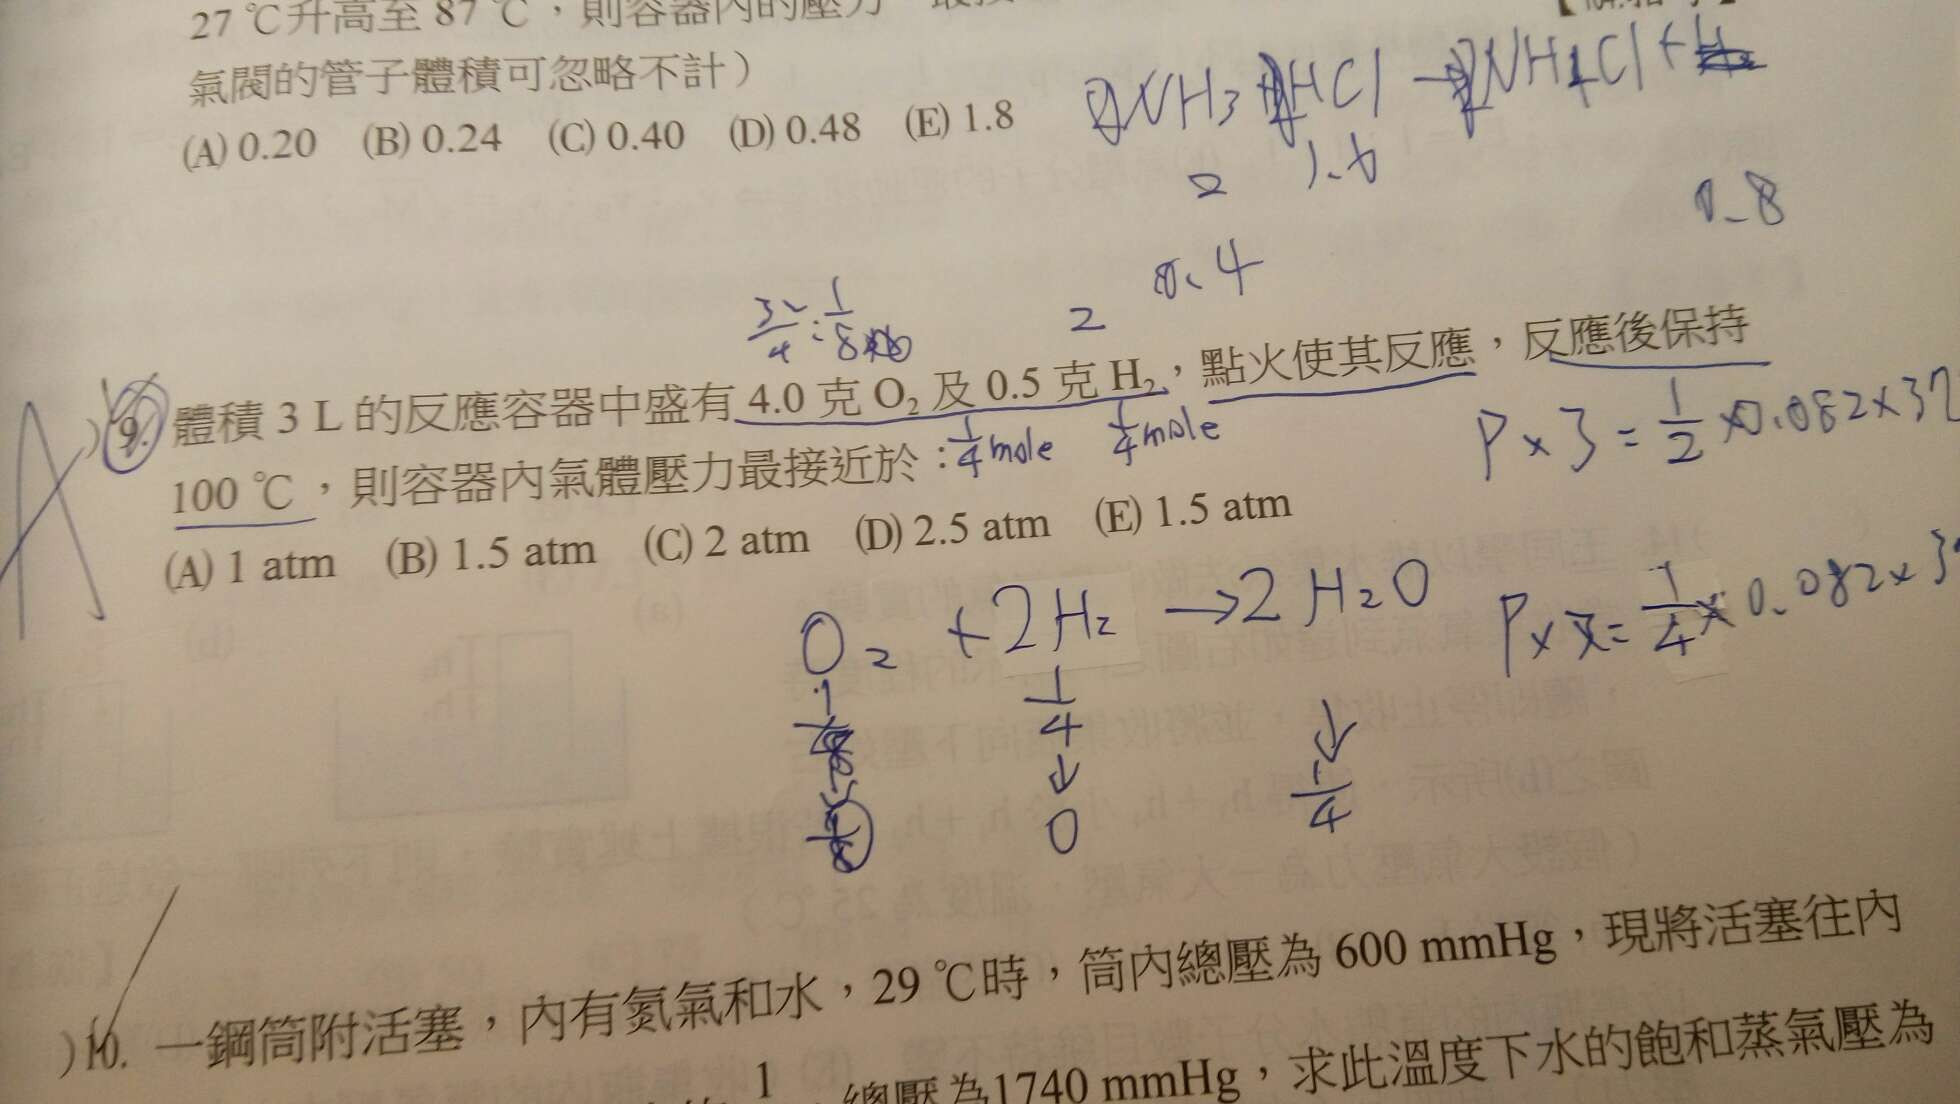 27 ℃升高至 87 ℃,則容器內的壓力
氣閥的管子體積可忽略不計)
(A) 0.20 (B) 0.24 (C) 0.40 (D) 0.48 (E) 1.8
2NH3 + 2HCl → 2NH4Cl +
2 1.6
0.8
2 0.4
)9. 體積 3 L 的反應容器中盛有 4.0 克 O₂ 及 0.5 克 H₂,點火使其反應,反應後保持
1/4 mole 1/4 mole
100 ℃,則容器內氣體壓力最接近於:
(A) 1 atm (B) 1.5 atm (C) 2 atm (D) 2.5 atm (E) 1.5 atm
P × 3 = 1/2 × 0.082 × 37
O₂ + 2H₂ → 2H₂O
1/4 ↓ 0
↓ 1/4
0.082 ×
)10. 一鋼筒附活塞,內有氮氣和水,29 ℃時,筒內總壓為 600 mmHg,現將活塞往內
1 總壓為1740 mmHg,求此溫度下水的飽和蒸氣壓為